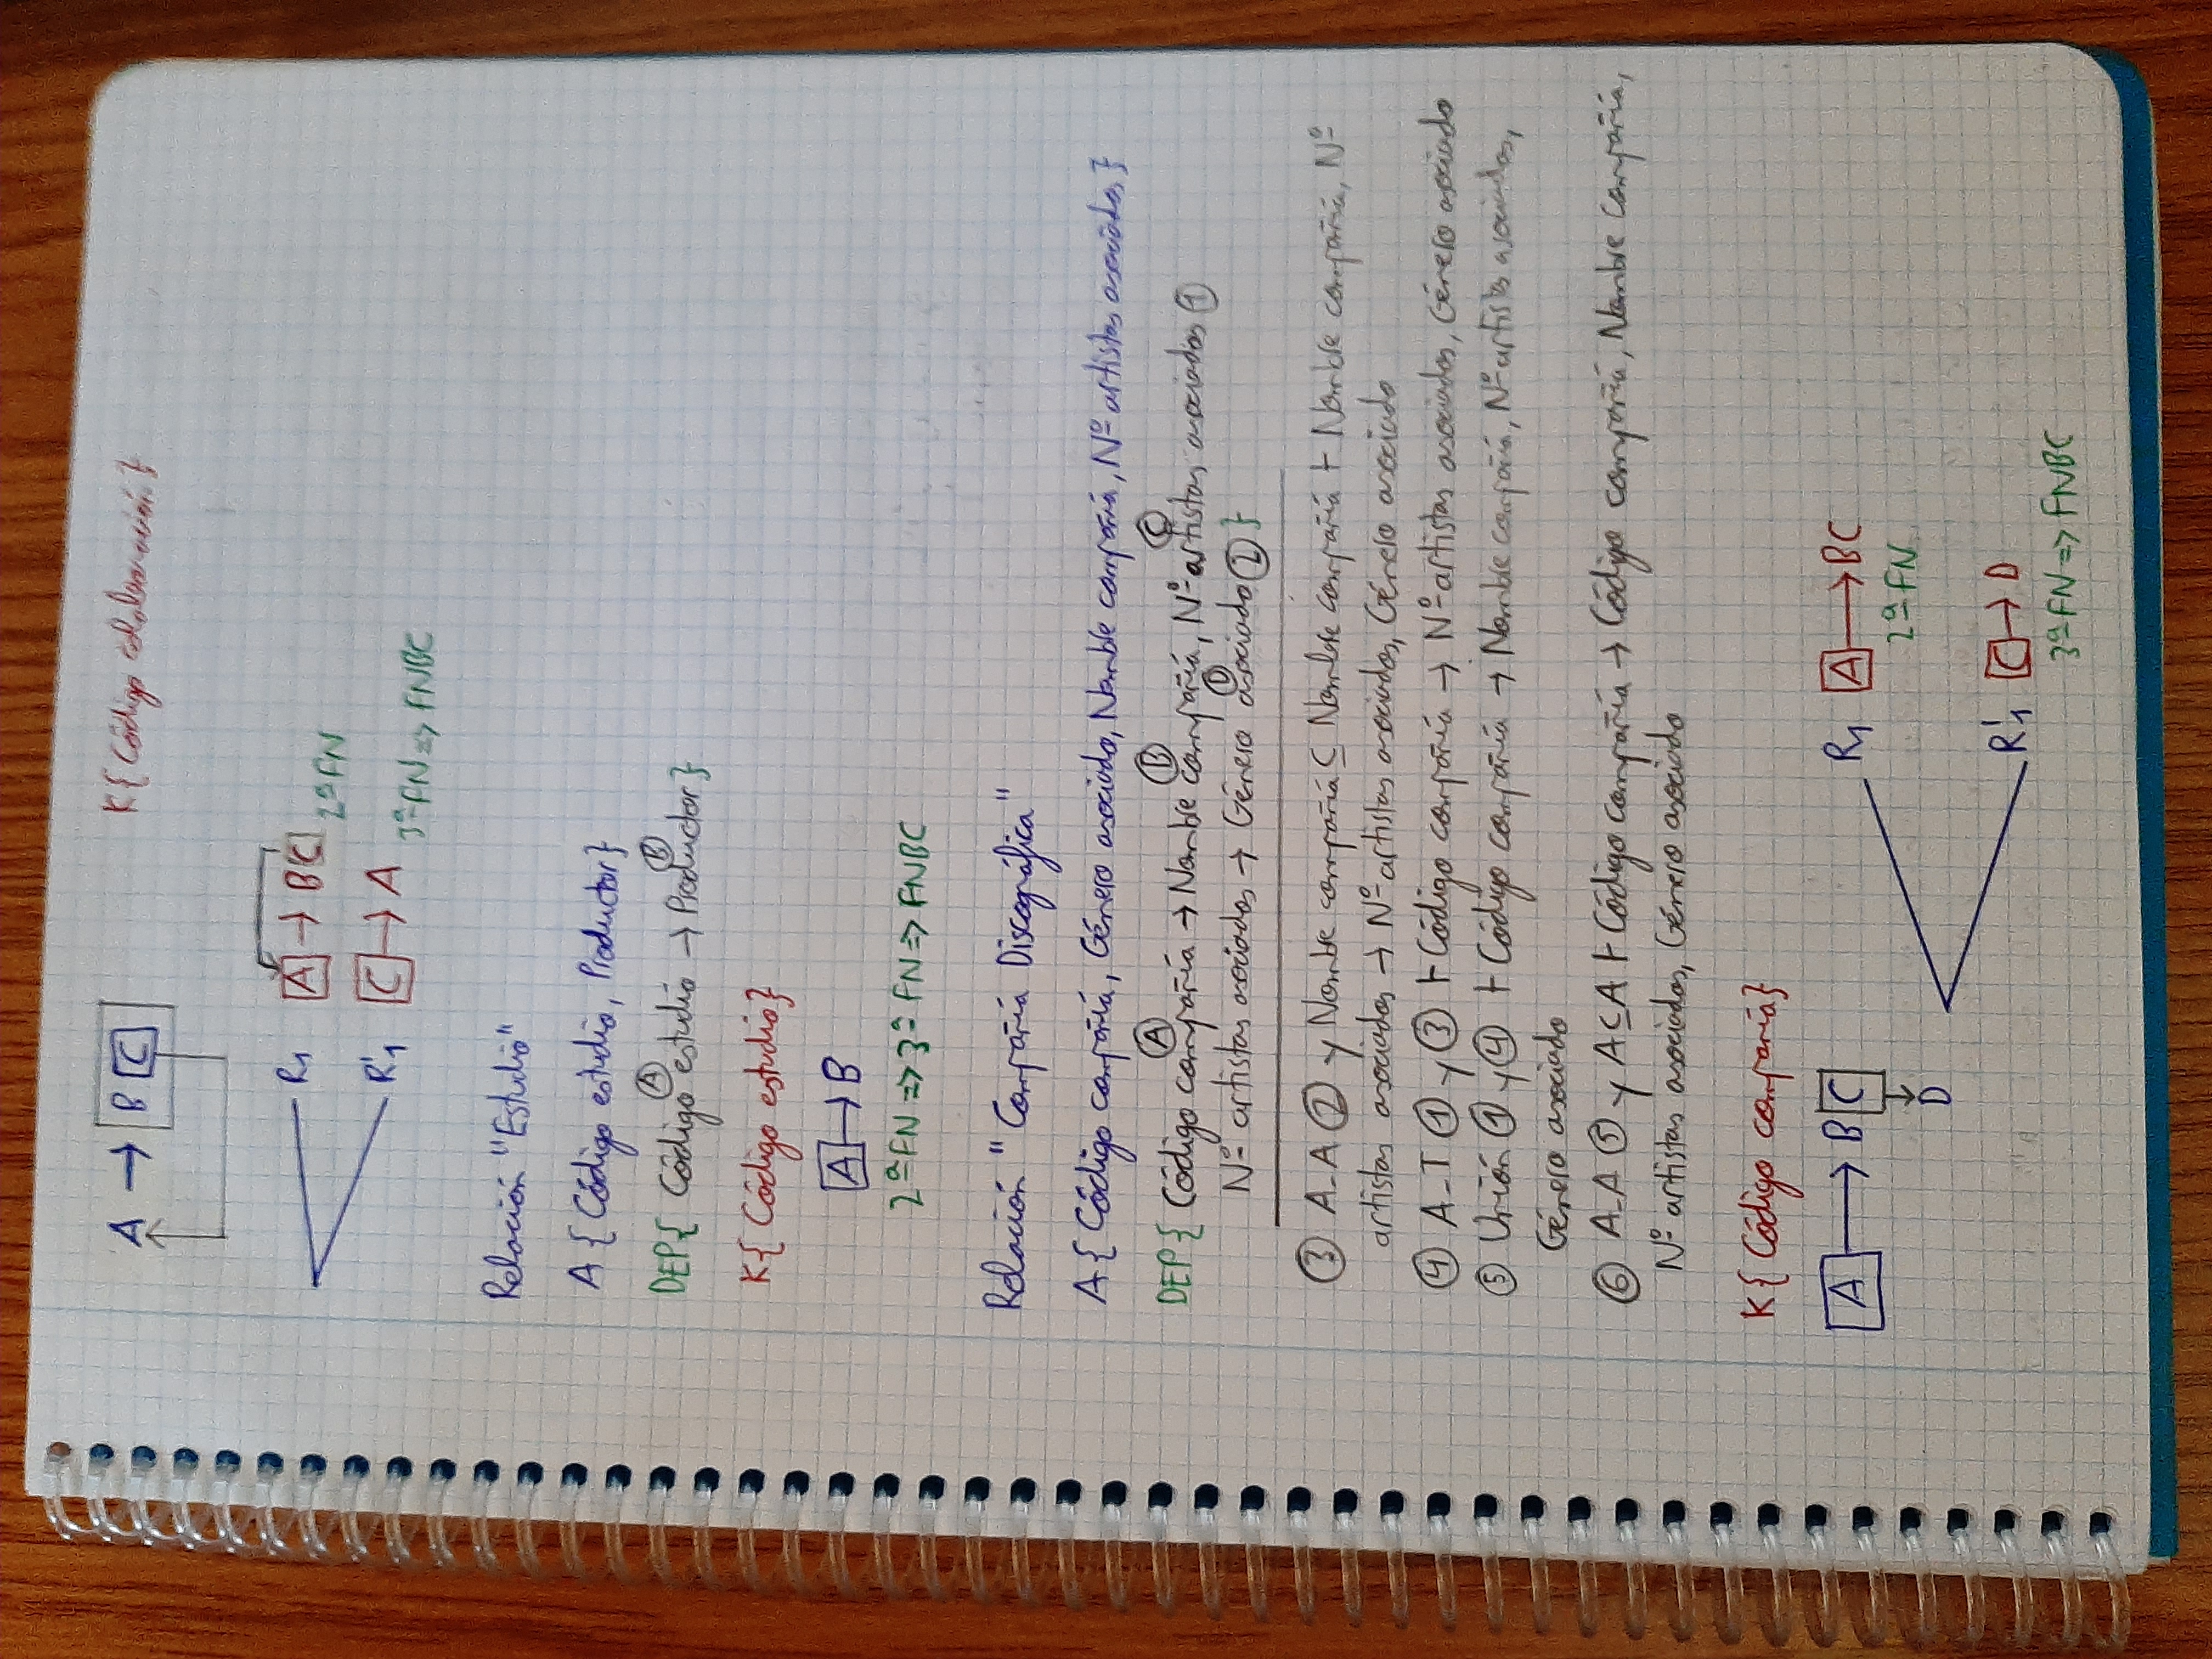 A → B C
K{ Código colaboración }
R1 A → B C 2ª FN
R'1 C → A 3ª FN => FNBC
Relación "Estudio"
A { Código estudio, Productor}
A B
DEP{ Código estudio → Productor}
K{ Código estudio}
A → B
2ª FN => 3ª FN => FNBC
Relación "Compañía Discográfica"
A { Código compañía, Género asociado, Nombre compañía, Nº artistas asociados }
A B C
DEP{ Código compañía → Nombre compañía, Nº artistas asociados 1
D
Nº artistas asociados → Género asociado 2 }
3 A-A 2 y Nombre compañía ⊆ Nombre compañía ⊢ Nombre compañía, Nº
artistas asociados → Nº artistas asociados, Género asociado
4 A-T 1 y 3 ⊢ Código compañía → Nº artistas asociados, Género asociado
5 Unión 1 y 4 ⊢ Código compañía → Nombre compañía, Nº artistas asociados,
Género asociado
6 A-A 5 y A ⊆ A ⊢ Código compañía → Código compañía, Nombre compañía,
Nº artistas asociados, Género asociado
K{ Código compañía}
A → B C
D
R1 A → BC
2ª FN
R'1 C → D
3ª FN => FNBC